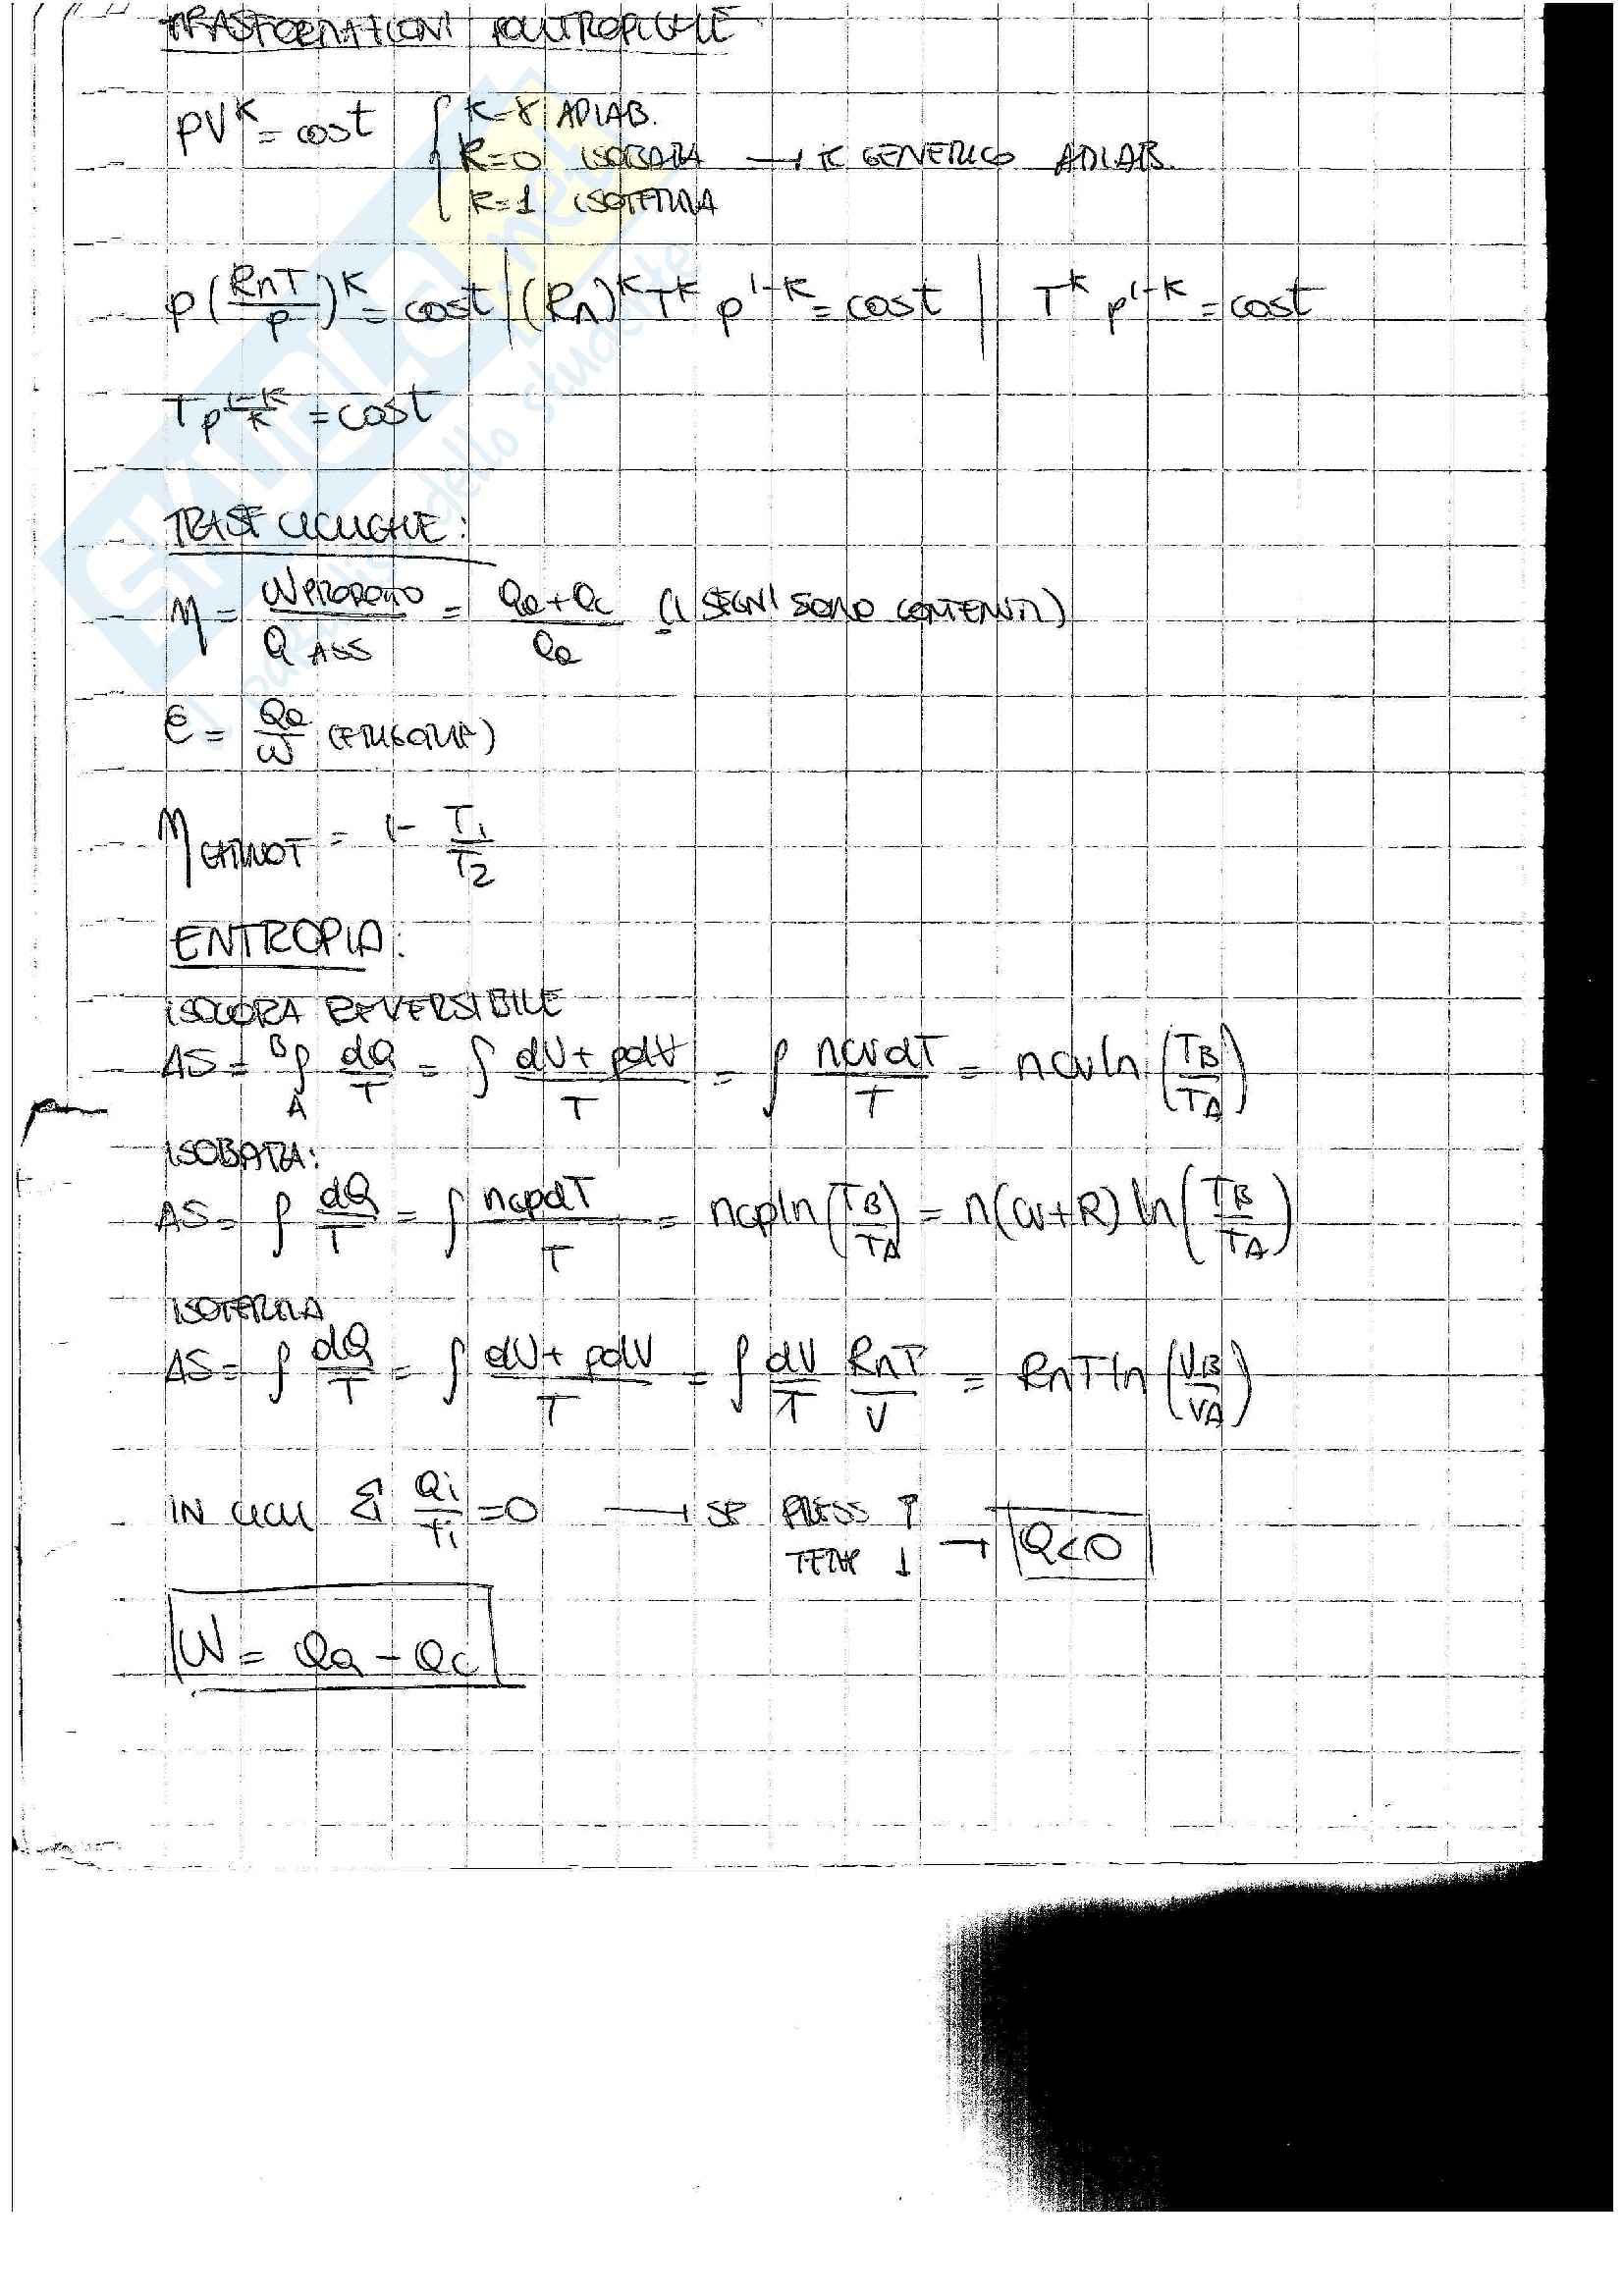 TRASFORMAZIONI POLITROPICHE
PV^K = cost { K=γ ADIAB.
K=0 ISOBARA → K GENERICO ADIAB.
K=1 ISOTERMA
P(RnT/P)^K = cost | (Rn)^K T^K P^(1-K) = cost | T^K P^(1-K) = cost
T P^((1-K)/K) = cost
TRASF CICLICHE:
η = W PRODOTTO / Q ASS = (Qa + Qc) / Qa (I SEGNI SONO CONTENUTI)
ε = Qa / W (FRIGORIF)
η CARNOT = 1 - T1/T2
ENTROPIA:
ISOCORA REVERSIBILE
ΔS = ∫_A^B dQ/T = ∫ (dU + pdV)/T = ∫ ncvdT/T = ncv ln (TB/TA)
ISOBARA:
ΔS = ∫ dQ/T = ∫ ncpdT/T = ncp ln (TB/TA) = n(cv+R) ln (TB/TA)
ISOTERMA
ΔS = ∫ dQ/T = ∫ (dU + pdV)/T = ∫ dV/T RnT/V = RnT ln (VB/VA)
IN CICLI Σ Qi/Ti = 0 → SE PRESS ↑
TEMP ↓ → Q<0
W = Qa - Qc